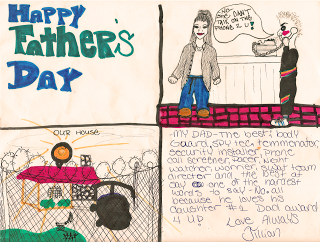 HAPPY
Father's
DAY
NO
SHE CAN'T
TALK ON THE
PHONE 2 U!
OUR HOUSE
-MY DAD- The best: body
Guard, spy tec, terminator,
security installer, phone
call screener, pacer, night
watcher, worrier, swat team
director and the best at
say one of the hardest
words to say - No. all
because he loves his
daughter #1 Dad award
4 U.P.
Love Always
Jillian